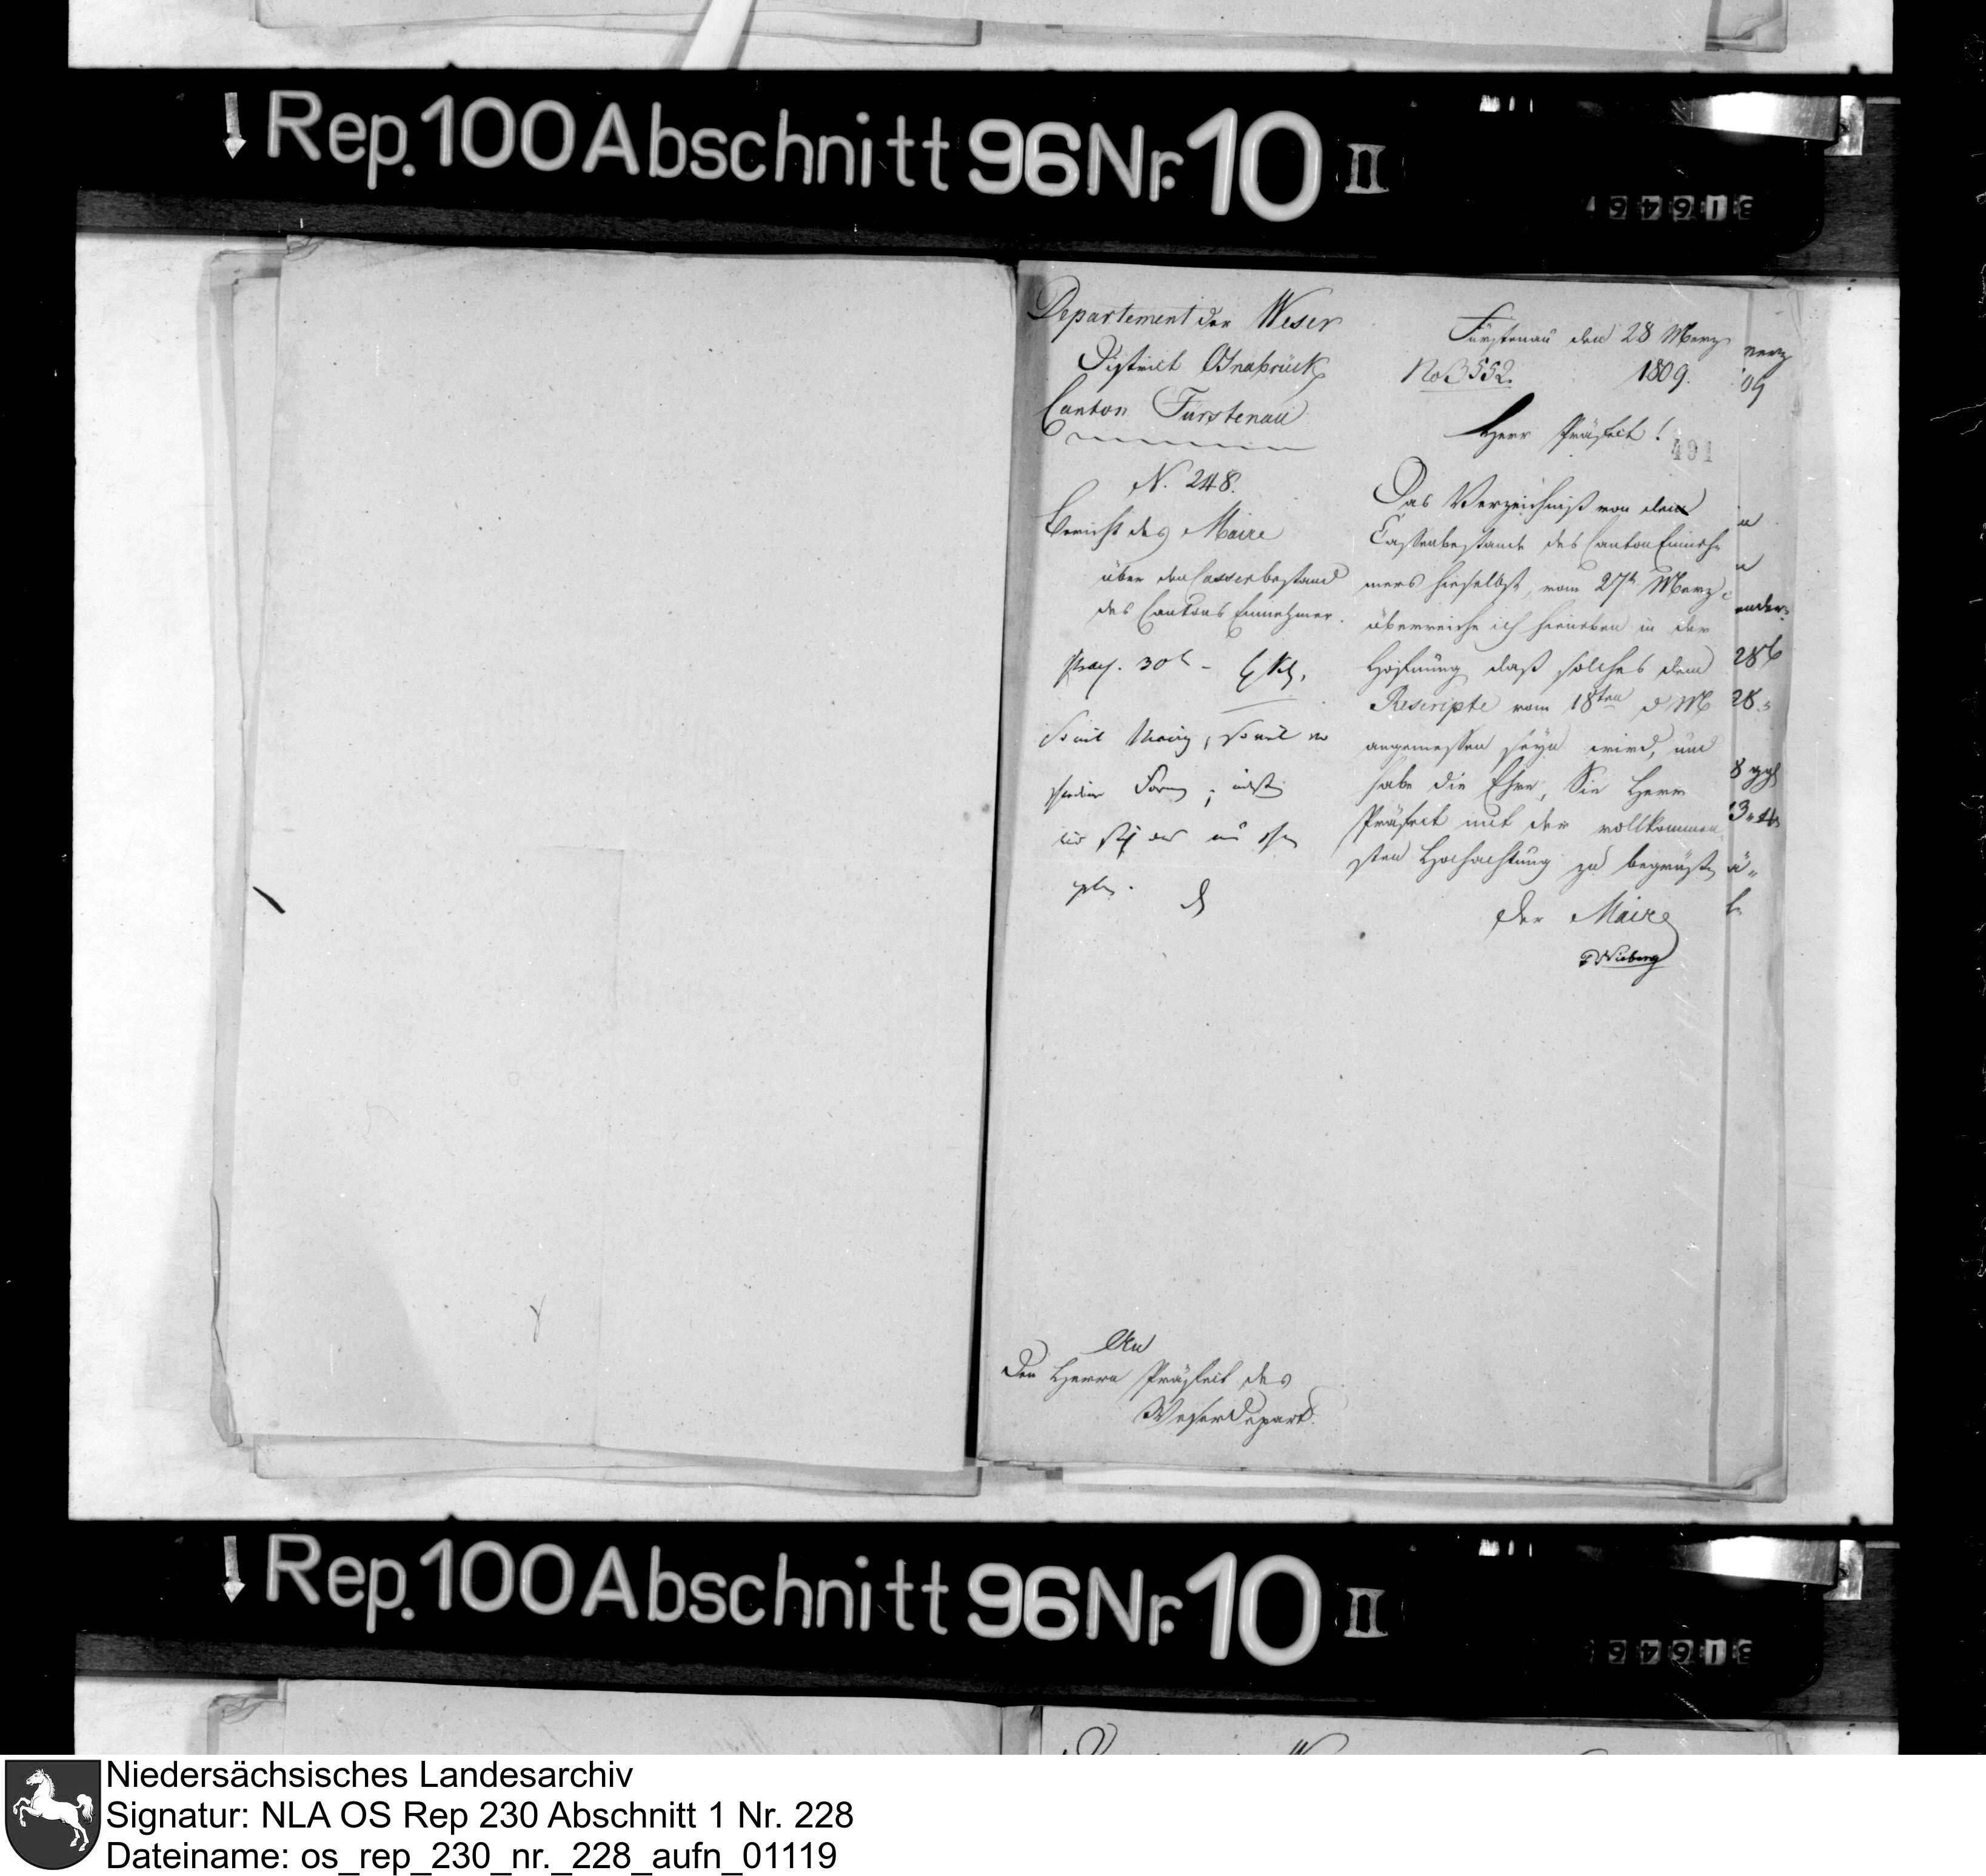 Rep. 100 Abschnitt 96 Nr. 10 II
31646
Departement der Weser
District Osnabrück
Canton Fürstenau
N. 248.
Bericht des Maire
über den Cassenbestand
des Cantons Einnehmer.
Fürstenau den 28 Merz
No 3552. 1809.
Herr Präfect!
491
Das Verzeichniß von dem
Cassenbestande des Canton Einneh
mers hieselbst, vom 27t Merz
überreiche ich hieneben in der
Hofnung daß solches dem
Rescripte vom 18ten d M
angemessen seyn wird, und
habe die Ehre, Sie Herr
Präfect mit der vollkommen
sten Hochachtung zu begrüßen
der Maire
Nieberg
An
Den Herrn Präfect des
WeserDepart.
Rep. 100 Abschnitt 96 Nr. 10 II
31646
Niedersächsisches Landesarchiv
Signatur: NLA OS Rep 230 Abschnitt 1 Nr. 228
Dateiname: os_rep_230_nr._228_aufn_01119